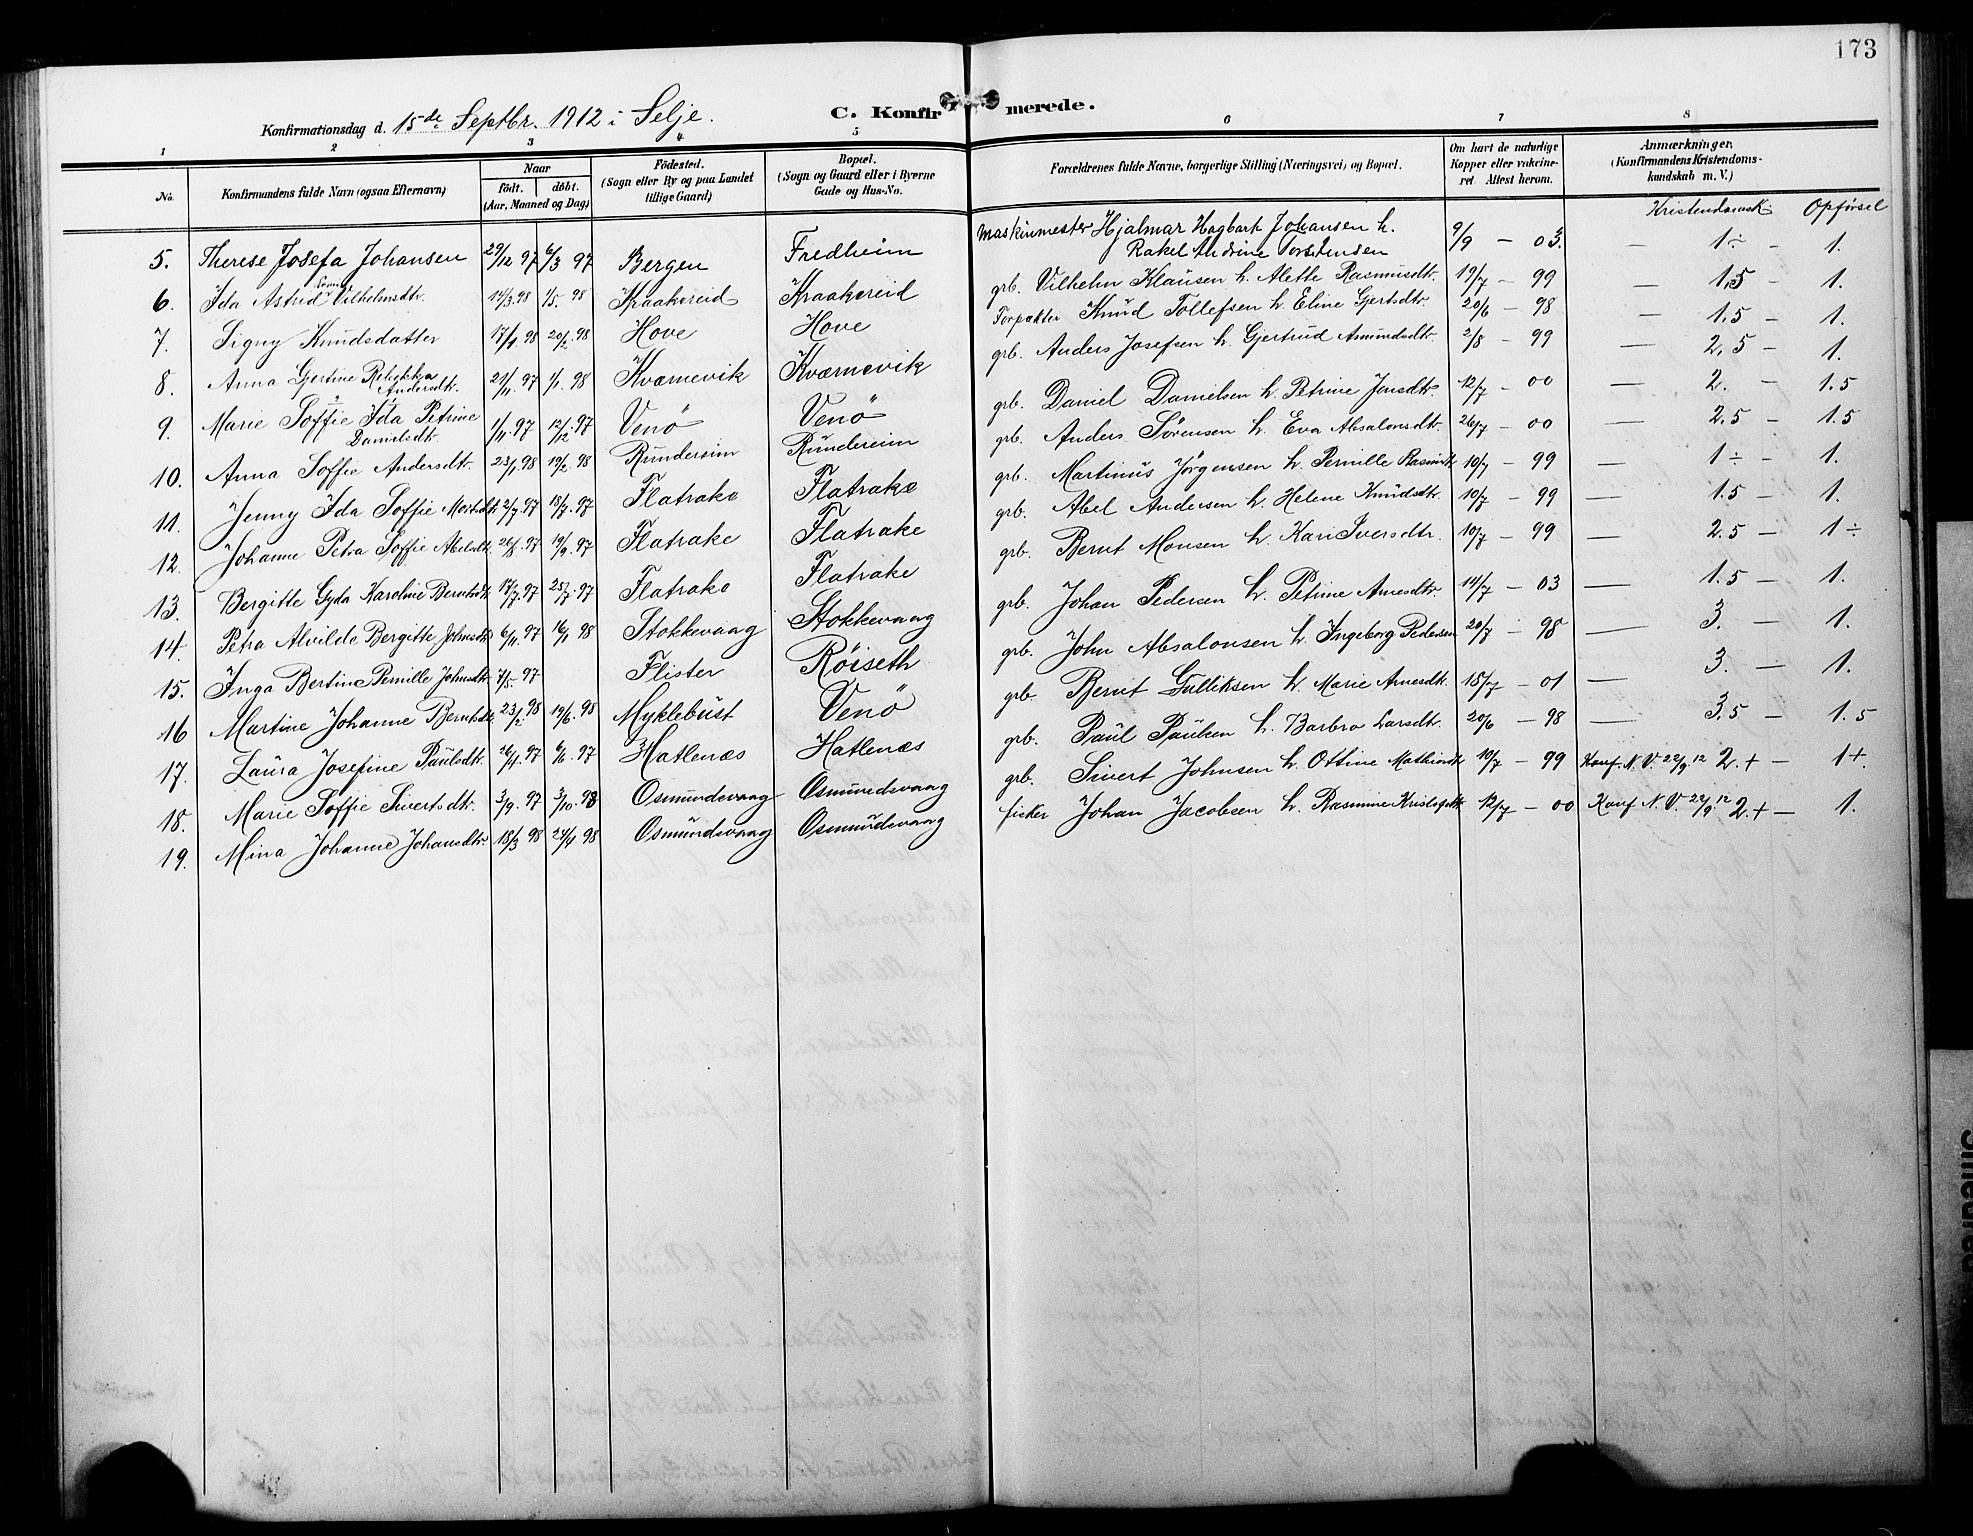 173
Konfirmationsdag d. 15de Septbr. 1912 i Selje.
C. Konfirmerede.
1 2 3 4 5 6 7 8
No. Konfirmandens fulde Navn (ogsaa Efternavn) Naar født. døbt. (Aar, Maaned og Dag) Fødested. (Sogn eller By og paa Landet tillige Gaard) Bopæl. (Sogn og Gaard eller i Byerne Gade og Hus-No. Forældrenes fulde Navne, borgerlige Stilling (Næringsvei) og Bopæl. Om havt de naturlige Kopper eller vakcineret. Attest herom. Anmærkninger. (Konfirmandens Kristendomskundskab m. V.)
Kristendomsk Opførsel
5. Therese Josefa Johansen 29/12 97 6/3 97 Bergen Fredheim Maskinmester Hjalmar Hagbart Johansen h. Rakel Andrine Torstensen 9/9 - 03. — 1÷ - 1.
6. Ida Astrid Vilhelmsdtr. 14/3 98 1/5. 98 Kraakereid Kraakereid grb. Vilhelm Klausen h. Alette Rasmusdtr. 19/7 - 99 — 1,5 - 1.
7. Signy Knudsdatter 17/1 98 20/2. 98 Hove Hove Forpakter Knud Tollefsen h. Eline Gjertsdtr. 20/6 - 98 — 1.5 - 1.
8. Anna Gjertine Rebekka Andersdtr. 21/11. 97 1/1 98 Kværnevik Kværnevik grb. Anders Josefsen h. Gjertrud Amundsdtr. 2/8 - 99 — 2,5 - 1.
9. Marie Soffie Ida Petrine Danielsdtr. 1/11. 97 12/12. 97 Venö Venö grb. Daniel Danielsen h. Petrine Jonsdtr. 12/7 - 00 — 2. - 1.5
10. Anna Soffie Andersdtr. 23/1. 98 19/2. 98 Rundereim Rundereim grb. Anders Sörensen h. Eva Absalonsdtr. 26/7 - 00 — 2,5 - 1.5
11. Jenny Ida Soffie Martsdtr 2/7. 97 18/7. 97 Flatrake Flatrake grb. Martinus Jörgensen h. Pernille Rasmdtr 10/7 - 99 — 1÷ - 1.
12. Johanne Petra Soffie Abelsdtr. 26/8. 97 19/9. 97 Flatrake Flatrake grb. Abel Andersen h. Helene Knudsdtr. 10/7 - 99 — 1.5 - 1.
13. Bergitte Gyda Karoline Berntsdtr 17/7. 97 25/7. 97 Flatrake Flatrake grb. Bernt Monsen h. Kari Iversdtr. 10/7 - 99 — 2.5 - 1÷
14. Petra Alvilde Bergitte Johnsdtr 6/11. 97 16/1 98 Stokkevaag Stokkevaag grb. Johan Pedersen h. Petrine Arnesdtr. 14/7 - 03 — 1.5 - 1.
15. Inga Bertine Pernille Johnsdtr 7/5. 97 Flister Röiseth grb. John Absalonsen h. Ingeborg Pedersen 20/7 - 98 — 3. - 1.
16 Martine Johanne Berntsdtr. 23/2. 98 19/6. 98 Myklebust Venö grb. Bernt Gulliksen h. Marie Arnesdtr. 15/7 - 01 — 3. - 1.
17. Laura Josefine Paulsdtr. 26/4. 97 6/6. 97 Hatlenæs Hatlenæs grb. Paul Paulsen h. Barbro Larsdtr. 20/6 - 98 — 3.5 - 1.5
18. Marie Soffie Sivertsdtr. 3/9. 97 3/10. 98 Osmundsvaag Osmundsvaag grb. Sivert Johnsen h. Ottine Mathiasdtr 10/7 - 99 Konf. N. V. 22/9 12 2.+ - 1+.
19. Mina Johanne Johansdtr. 18/3 98 24/4 98 Osmundsvaag Osmundsvaag fisker Johan Jacobsen h. Rasmine Kristofdtr 12/7 - 00 Konf N. V. 22/9. 12 2.+ - 1.